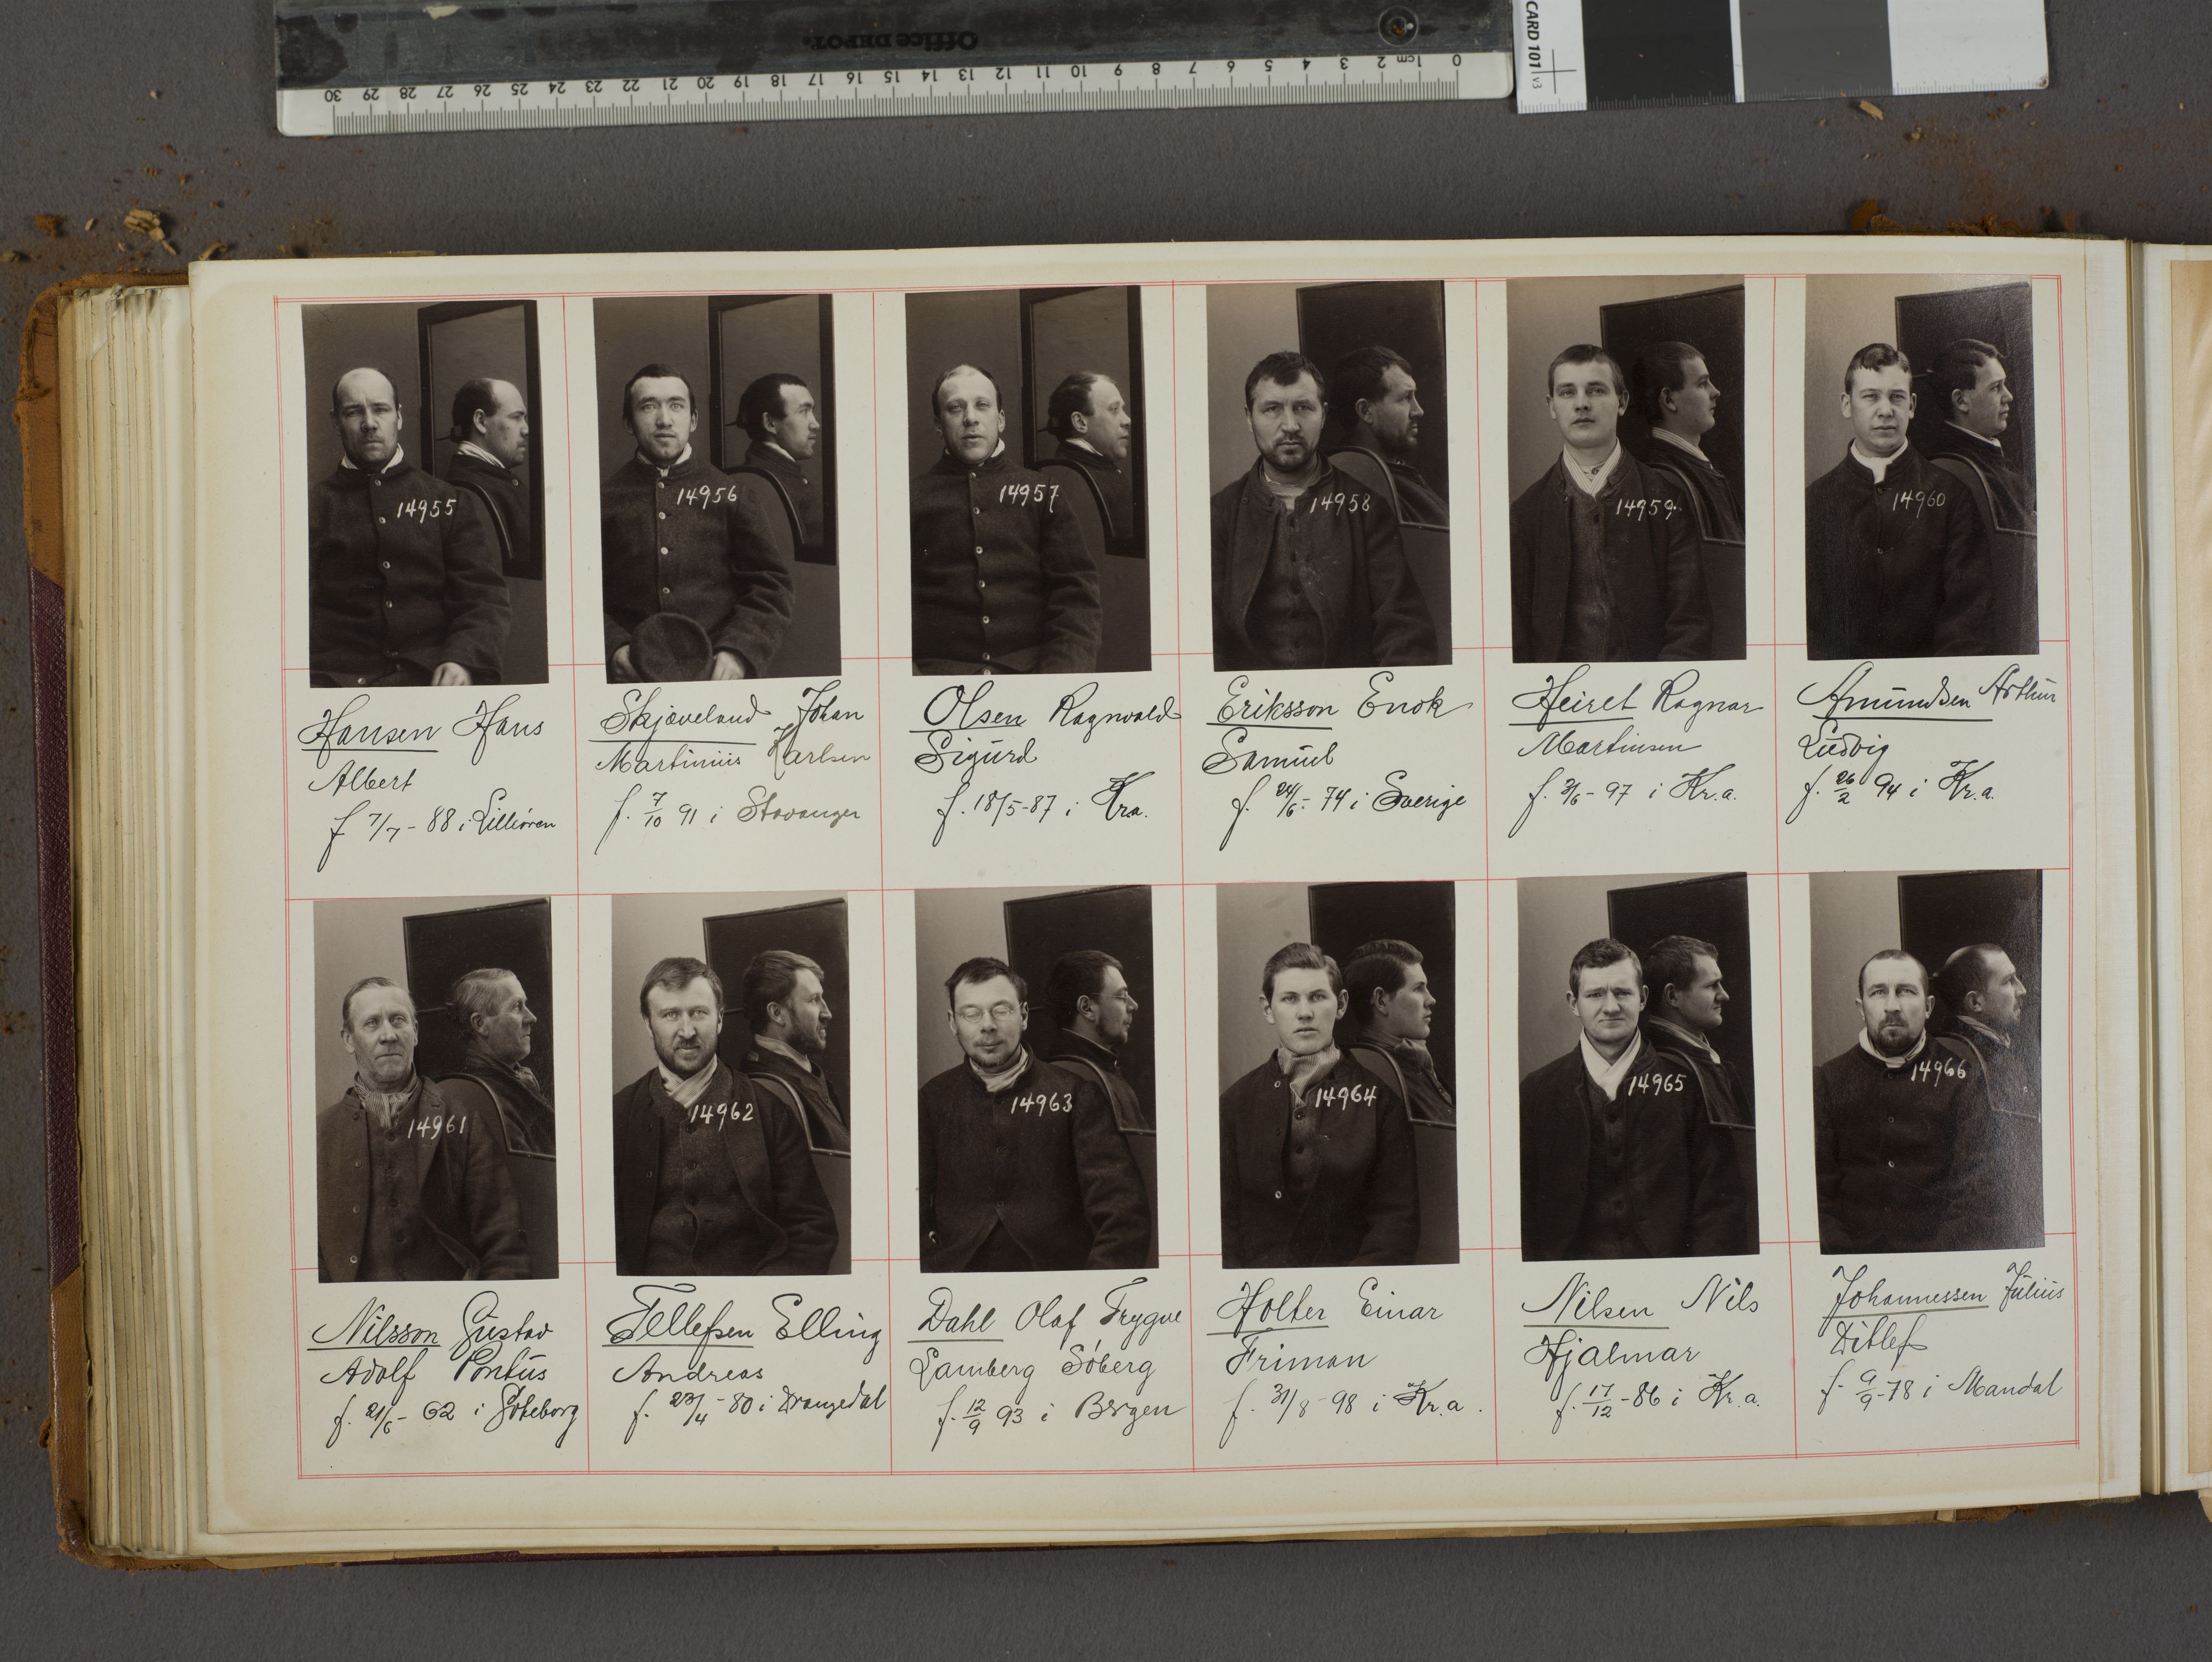 Office DEPOT.
0 1cm 2 3 4 5 6 7 8 9 10 11 12 13 14 15 16 17 18 19 20 21 22 23 24 25 26 27 28 29 30
CARD 101 v3
14955
14956
14957
14958
14959.
14960
Hansen Hans
Albert
f 7/7 - 88 i
Skjæveland Johan
Martinius Karlsen
f. 7/10 91 i Stavanger
Olsen Ragnvald
Sigurd
f. 18/5-87 i Kra.
Eriksson Enok
Samuel
f. 24/6 - 74 i Sverige
Heiret Ragnar
Martinsen
f. 3/6 - 97 i Kr.a.
Amundsen Arthur
Ludvig
f. 26/2 94 i Kr.a.
14961
14962
14963
14964
14965
14966
Nilsson Gustav
Adolf Pontus
f. 21/6 - 62 i Göteborg
Tellefsen Elling
Andreas
f. 23/4 - 80 i Drangedal
Dahl Olaf Trygve
Lamberg Söberg
f. 12/9 93 i Bergen
Holter Einar
Friman
f. 31/8 - 98 i Kr.a.
Nilsen Nils
Hjalmar
f. 17/12 - 86 i Kr.a.
Johannessen Julius
Ditlef
f. 9/9-78 i Mandal